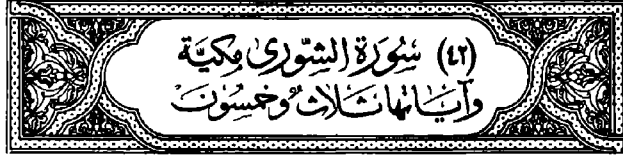 (٤٢) سُورَة الشّورى مكيَّة
وآيَاتها ثَلاث وخمسُونَ